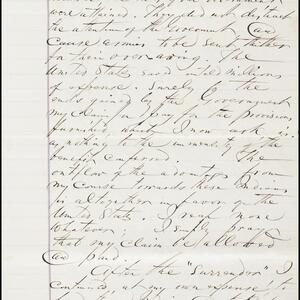 were attained. They did not distract
the attention of the Government (and
cause armies to be sent thither
for their over awing. The
United States saved untold millions
of expense. Surely by the
ends gained by the Government
my claim for pay for the provisions
furnished which I now ask is
as nothing to the immensity of the
benefit conferred. The
outflow of the advantages from
my course towards these Indians
is altogether in favor of the
United States. I reap none
whatever; I simply pray
that my claim be allowed
(and paid.
After the "Surrender" I
continued, at my own expense to